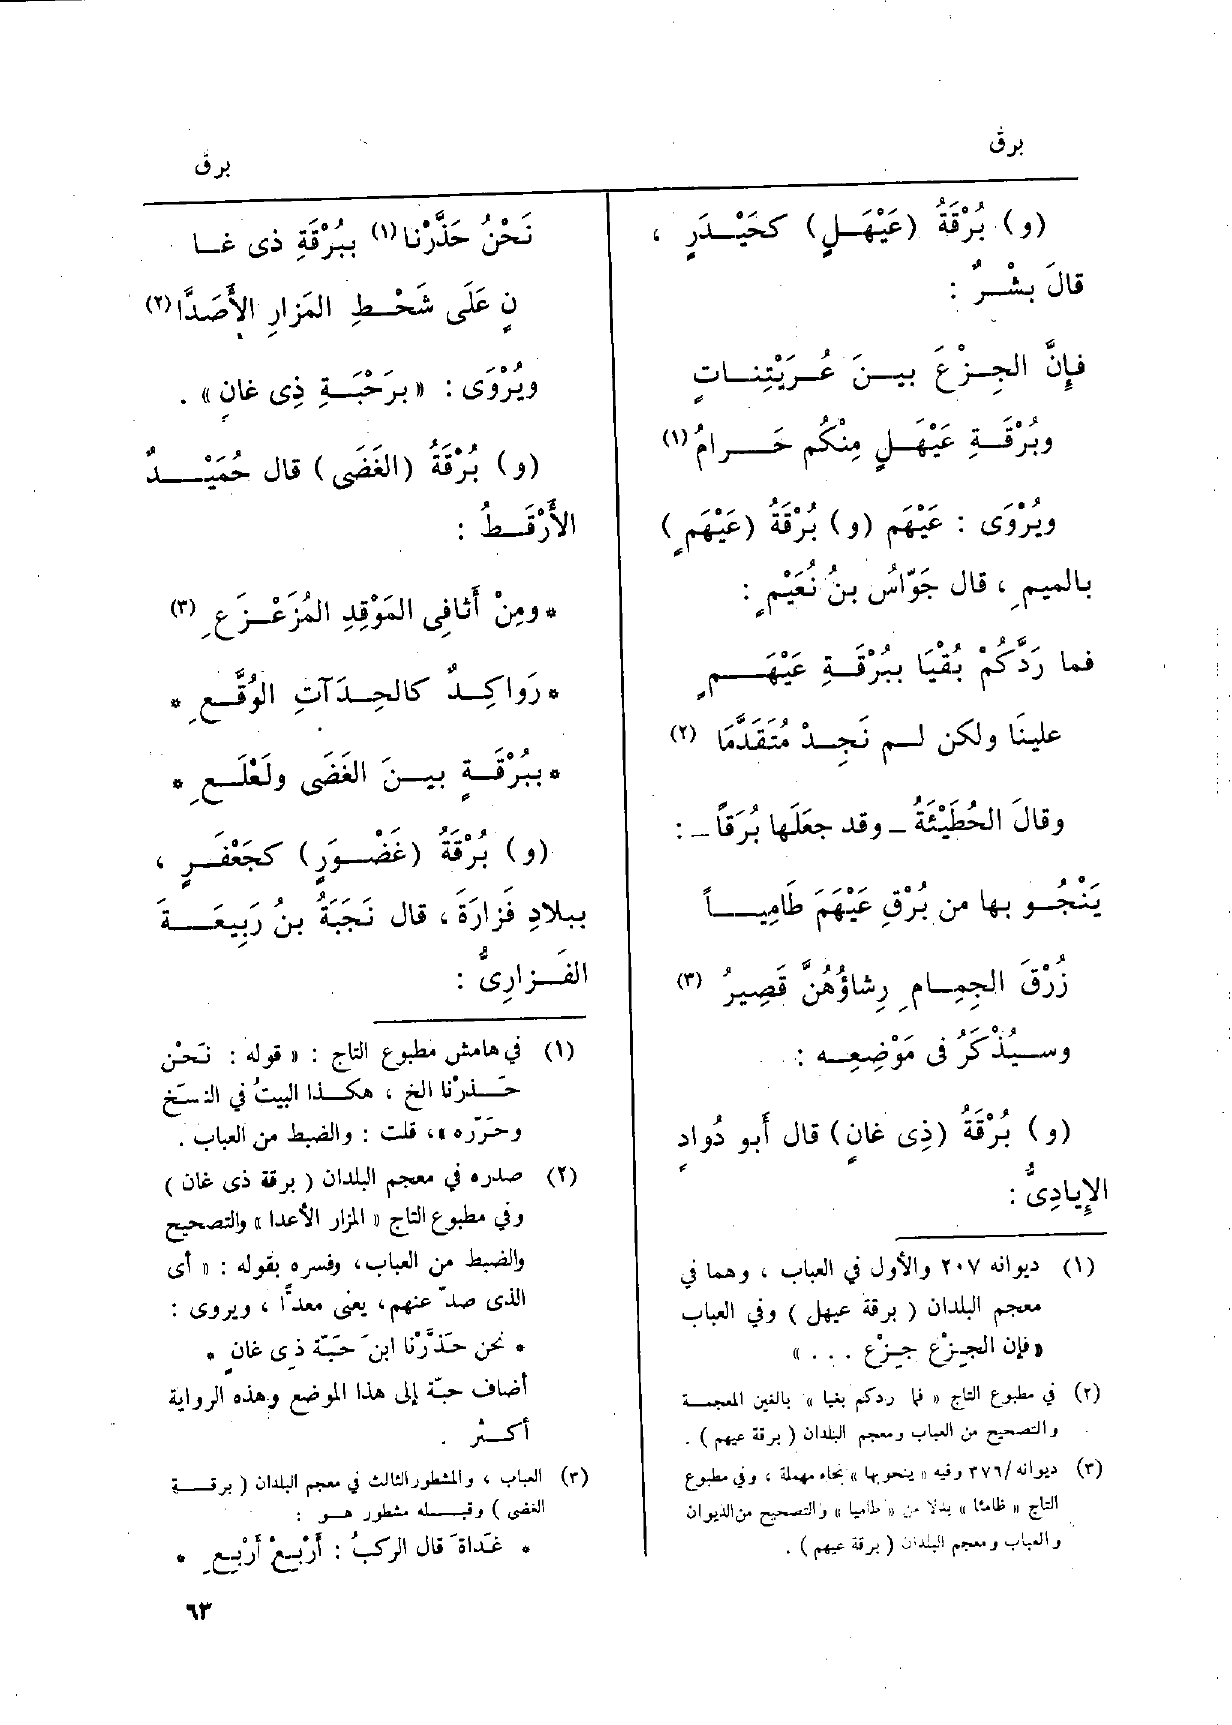 برق
برق
(و) بُرْقَةُ (عَيْهَلٍ) كحَيْدَرٍ ،
قالَ بِشْرٌ :
فإِنَّ الجِزْعَ بينَ عُرَيْتِناتٍ
وبُرْقَةِ عَيْهَلٍ مِنْكُم حَرامُ (١)
ويُرْوَى : عَيْهَم (و) بُرْقَةُ (عَيْهَمٍ)
بالميمِ ، قال جَوّاسُ بنُ نُعَيْمٍ :
فما رَدَّكُمْ بُقْيَا ببُرْقَةِ عَيْهَمٍ
علينَا ولكن لم نَجِدْ مُتَقَدَّمَا (٢)
وقالَ الحُطَيْئَةُ ـ وقد جعَلَها بُرَقاً ـ :
يَنْجُو بها من بُرْقِ عَيْهَمَ طَامِياً
زُرْقَ الجِمامِ رِشاؤُهُنَّ قَصِيرُ (٣)
وسيُذْكَرُ فى مَوْضِعِه .
(و) بُرْقَةُ (ذِى غانٍ) قال أَبو دُوادٍ
الإِيادِىُّ :
(١) ديوانه ٢٠٧ والأول في العباب ، وهما في
معجم البلدان ( برقة عيهل ) وفي العباب
« فإن الجِزْع جِزْع . . . »
(٢) في مطبوع التاج « فما ردكم بغيا » بالغين المعجمة
والتصحيح من العباب ومعجم البلدان ( برقة عيهم ) .
(٣) ديوانه/٣٧٦ وفيه « ينحو بها » بحاء مهملة ، وفي مطبوع
التاج « ظامئا » بدلا من « طاميا » والتصحيح من الديوان
والعباب ومعجم البلدان ( برقة عيهم ) .
نَحْنُ حَذَّرْنا (١) ببُرْقَةِ ذى غا
نٍ عَلَى شَحْطِ المَزارِ الأَصَدَّا (٢)
ويُرْوَى : « برَحْبَةِ ذِى غانٍ » .
(و) بُرْقَةُ (الغَضَى) قال حُمَيْدٌ
الأَرْقَطُ :
* ومِنْ أَثافِى المَوْقِدِ المُزَعْزَعِ (٣)
* رَواكِدٌ كالحِدَآتِ الوُقَّعِ *
* ببُرْقَةٍ بينَ الغَضَى ولَعْلَعِ *
(و) بُرْقَةُ (غَضْوَرٍ) كجَعْفَرٍ ،
ببلادِ فَزارَةَ ، قال نَجَبَةُ بنُ رَبِيعَةَ
الفَزارِىُّ :
(١) في هامش مطبوع التاج : « قوله : نَحْن
حَذرْنا الخ ، هكذا البيتُ في النسَخ
وحَرّره »، قلت : والضبط من العباب .
(٢) صدره في معجم البلدان ( برقة ذى غان )
وفي مطبوع التاج « المزار الأعدا » والتصحيح
والضبط من العباب، وفسره بقوله : « أى
الذى صدّ عنهم، يعنى معدًّا ، ويروى :
* نحن حَذَّرْنا ابنَ حَبّة ذِى غانٍ *
أضاف حبّة إلى هذا الموضع وهذه الرواية
أكثر .
(٣) العباب ، والمشطور الثالث في معجم البلدان ( برقة
الغضى ) وقبله مشطور هو :
* غَداةَ قال الركبُ : أَرْبِعْ أَرْبِعِ *
٦٣